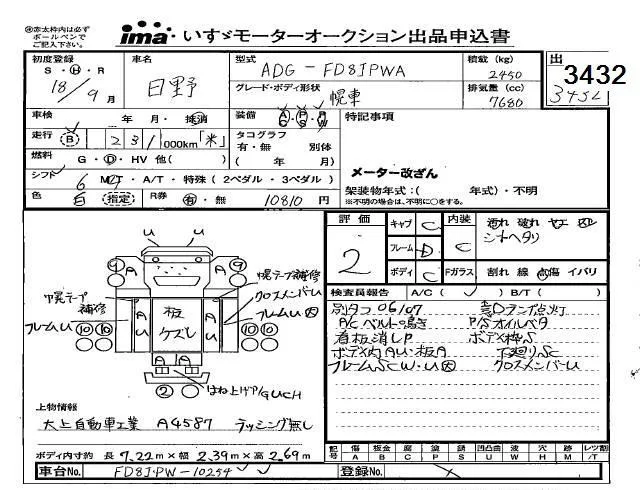 ※赤太枠内は必ず
ボールペンで
ご記入下さい。
ima・いすゞモーターオークション出品申込書
初度登録
S・H・R
18/9月
車名
日野
型式
ADG-FD8JPWA
グレード・ボディ形状
幌車
積載(kg)
2450
排気量(cc)
7680
出
3432
3432
車検
年 月・抹消
走行
(B) 231000km「米」
燃料
G・D・HV 他( )
シフト
6 MT・A/T・特殊(2ペダル・3ペダル)
色
白(指定)
R券
有・無
10810円
装備 A/C P/S P/W
タコグラフ
有・無 別体
( 年 月)
特記事項
メーター改ざん
架装物年式:( 年式)・不明
※不明の場合は、不明に○をする。
評価
2
キャブ C
フレーム D
ボディ C
内装
C
汚れ 破れ セエ
シートヘタリ
Fガラス
割れ 線 点傷 イバリ
検査員報告 A/C( ✓ ) B/T( )
別タコ 06/07
ランプ点灯
A/C ベルト鳴き P/Sオイルベタ
看板消しP ボデメ枠S
ボデメ内AU・板A 下廻りSC
フレームSCW・U 凹 クロスメンバーU
U U
9 A A 9
幌テープ補修
クロスメンバーU
フレームU 凹
幌テープ
補修
フレームU
10 10 10 10
A U 板ケズレ A U
2
はね上げP/GUCH
上物情報
大上自動車工業 A4587 ラッシング無し
ボディ内寸 約 長 7.22m×幅 2.39m×高 2.69m
記号 傷A 板金B 腐C 塗P 錆S 凹凸曲U 波W 穴H 跡M レツ割/T
車台No. FD8JPW-10254
登録No.